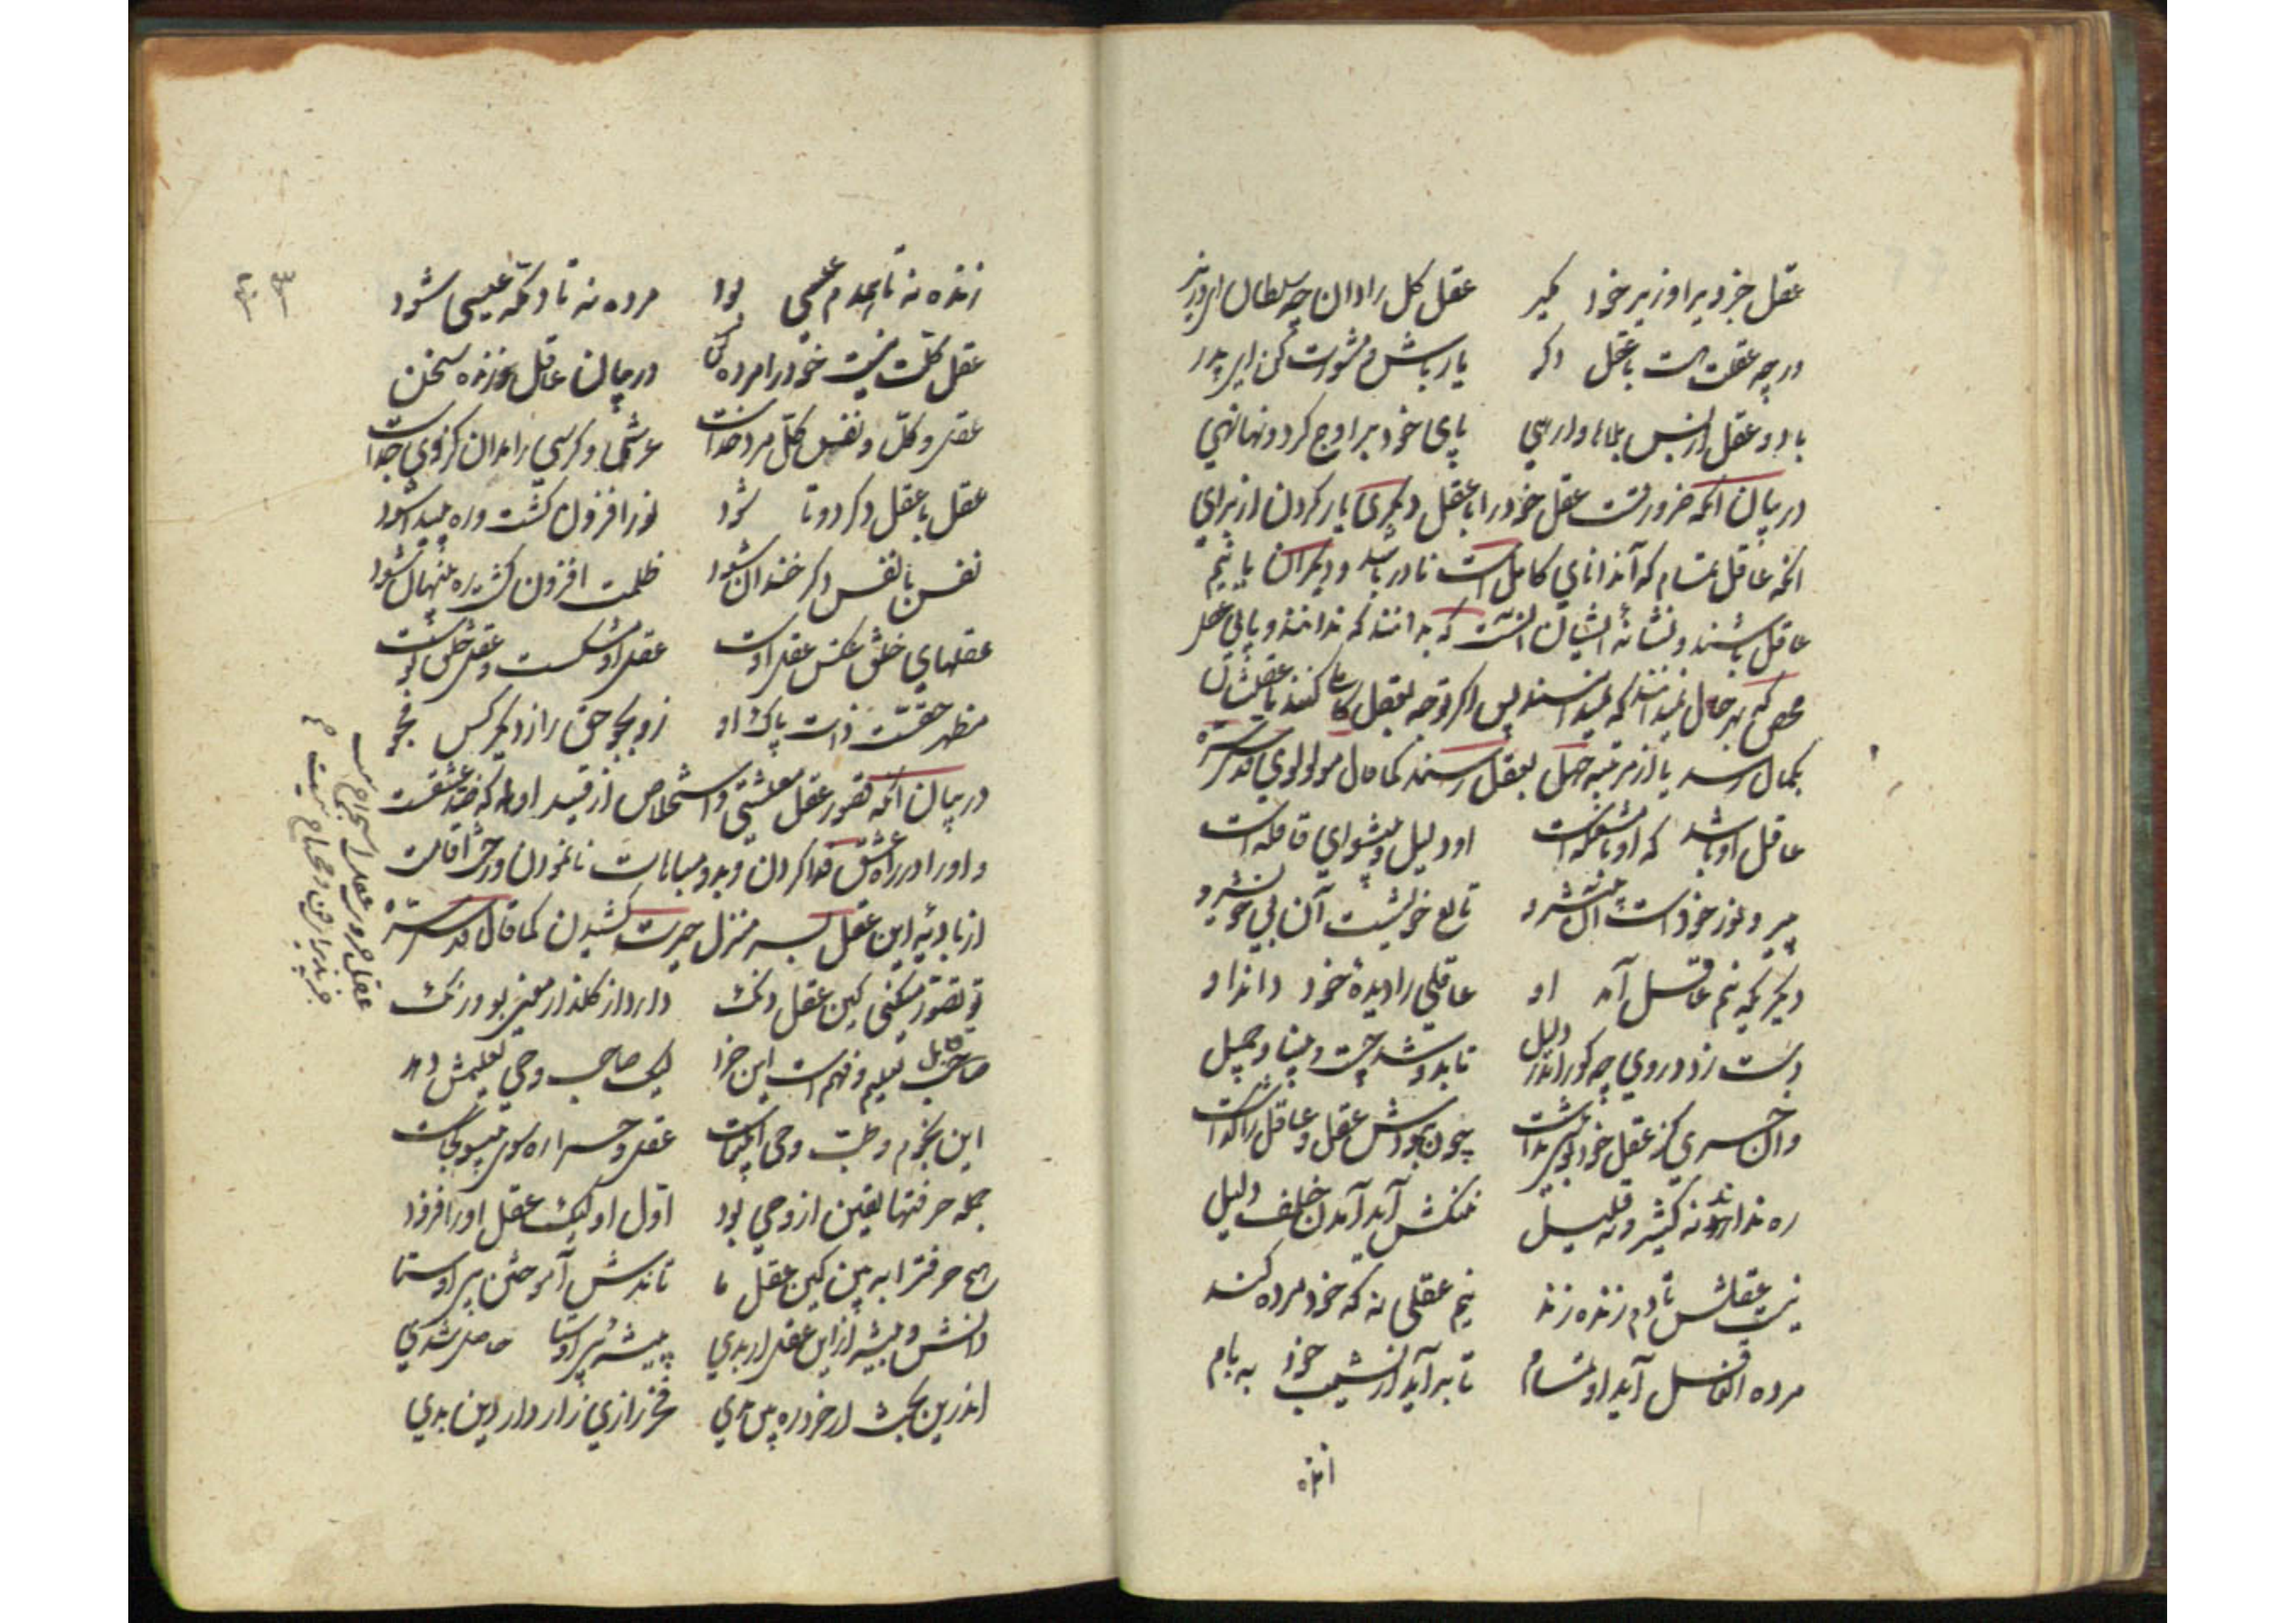 عقل جزو برا وزیر خود مگیر عقل کل را دان چه سلطان ای وزیر
ور چه عقلت هست با عقل دگر یار باش و مشورت کن ای پدر
با دو عقل از بس بلاها وارهی پای خود بر اوج گردونها نهی
در بیان آنکه ضرورتست عقل خود را با عقل دیگری یار کردن از برای
آنکه عاقل تمام که آن دانای کامل است نادر باشد و دیگران یا نیم
عاقل باشند و نشانهٔ ایشان آنست که بدانند که ندانند و یا بی عقل
محض که بهر حال نمیدانند که نمیدانند پس اگر توجه بعقل کامل کنند یا عقلشان
بکمال رسد یا از مرتبه جهل بعقل رسند کما قال مولوی قدس سره
عاقل او باشد که او با مشعله است او دلیل و پیشوای قافله است
پیرو نور خود است آن پیشرو تابع خویشست آن بی خویش رو
دیگری که نیم عاقل آمد او عاقلی را دیدهٔ خود داند او
دست زد در وی چه کور اندر دلیل تا بدو شد چست و بینا و جلیل
وان خری کز عقل خود جو سر نداشت چون نبودش عقل و عاقل را گذاشت
ره نداند نه کثیر و نه قلیل ننگش آید آمدن خلف دلیل
نیست عقلش تا دم زنده زند نیم عقلی نه که خود مرده کند
مرده آن عاقل آید او تمام تا بر آید از نشیب خود به بام
زنده نه تا همدم عیسی بود مرده نه تا دمگه عیسی شود
عقل کلت نیست خود را مرده کن در چنان عاقل زنده سخن
عقل کل و نفس کل مرد خداست عرش و کرسی را مدان کز وی جداست
عقل با عقل دگر دوتا شود نور افزون گشت و ره پیدا شود
نفس با نفس دگر خندان شود ظلمت افزون گشت ره پنهان شود
عقلهای خلق عکس عقل اوست عقل او مشکست و عقل خلق بوست
مظهر حقست ذات پاک او زو بجو حق را ز دیگر کس مجو
در بیان آنکه تصور عقل معیشتی و استخلاص از قید او که ضد عشقست
و او را در راه عشق فدا کردن و بدو مباهات نانمودن و رخت اقامت
از بادیهٔ این عقل بسر منزل حیرت کشیدن کما قال قدس سره
تو تصور میکنی کین عقل دنگ دارد از گلزار معنی بو و رنگ
قابل تعلیم و فهم است این خرد لیک صاحب وحی تعلیمش دهد
این نجوم و طب وحی انبیاست عقل و حس را سوی بیسو ره کجاست
جمله حرفتها یقین از وحی بود اول او لیک عقل او را فزود
هیچ حرفت را ببین کین عقل ما تاندش آموختن بی اوستا
دانش و پیشه از این عقل ار بدی پیشهٔ بی اوستا حاصل شدی
اندرین بحث ار خرد ره بین بدی فخر رازی رازدار دین بدی